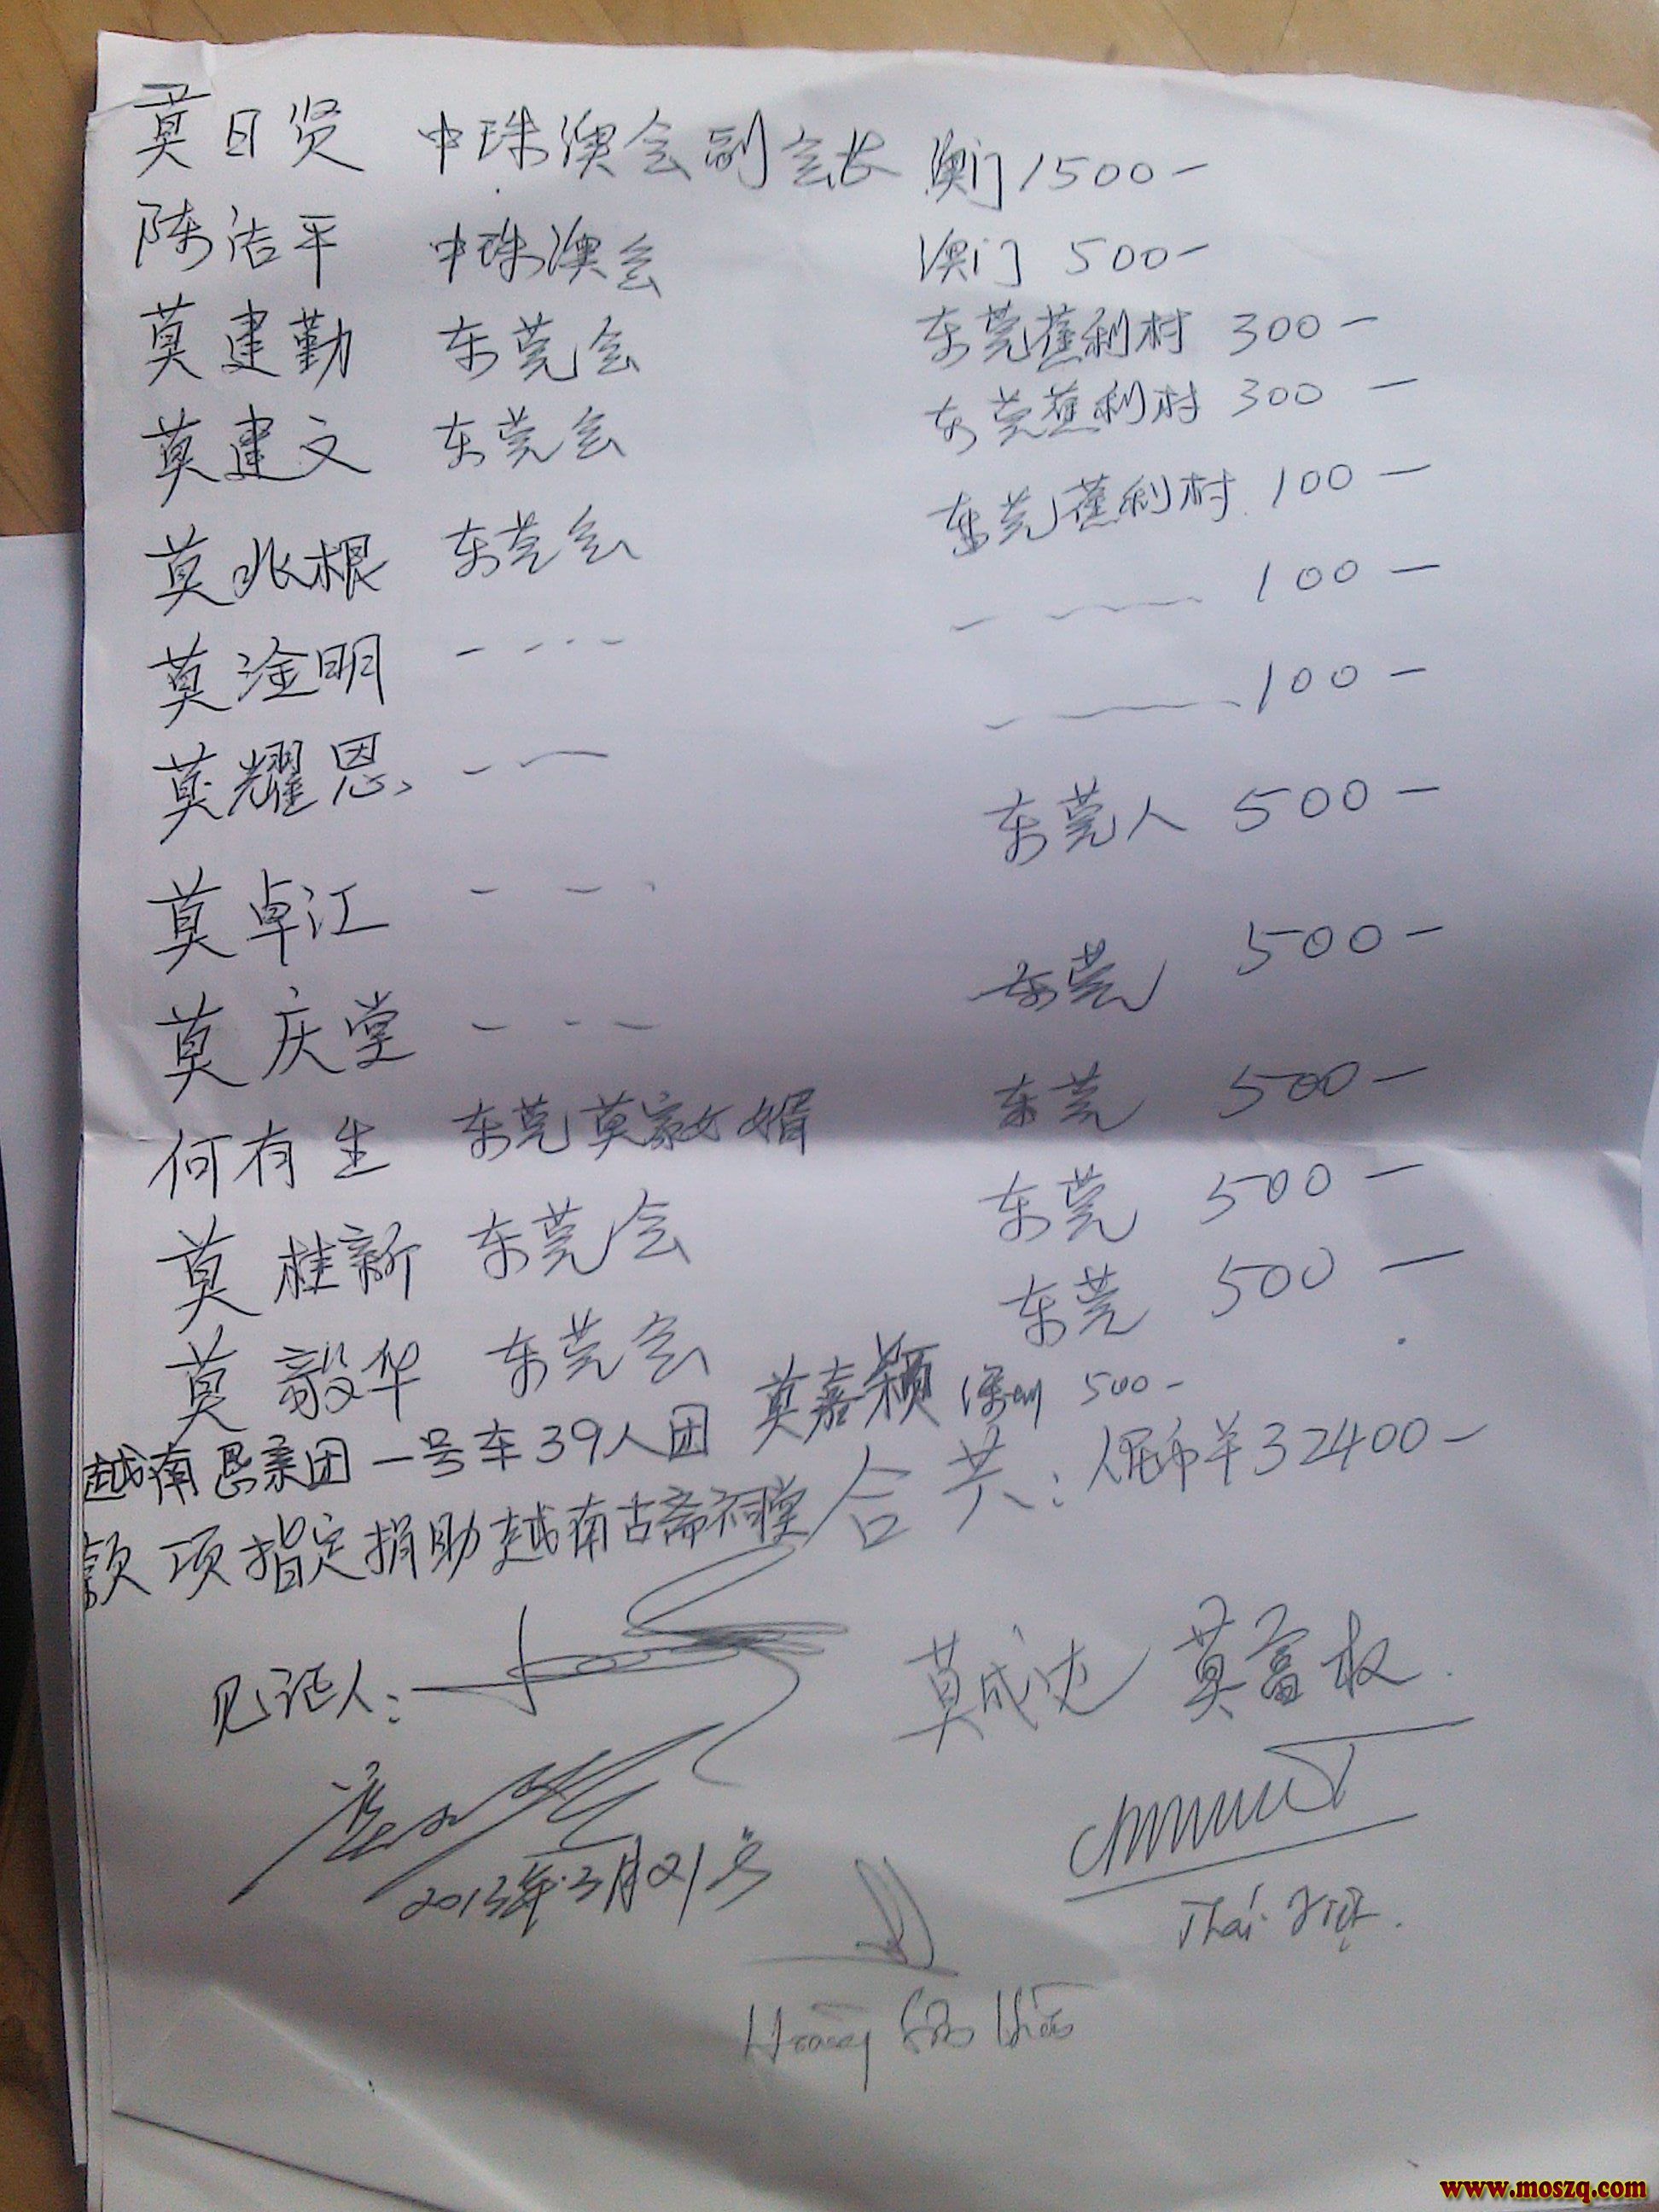 莫日贤 中珠澳会副会长 澳门 1500-
陈洁平 中珠澳会 澳门 500-
莫建勤 东莞会 东莞蕉利村 300-
莫建文 东莞会 东莞蕉利村 300-
莫兆根 东莞会 东莞蕉利村 100-
莫淦明 100-
莫耀恩 100-
莫卓江 东莞人 500-
莫庆堂 东莞 500-
何有生 东莞莫家女婿 东莞 500-
莫桂新 东莞会 东莞 500-
莫毅华 东莞会 东莞 500-
莫嘉颖 深圳 500-
越南恳亲团一号车39人团 合共:人民币¥32400-
款项指定捐助越南古斋祠堂
见证人:
莫成达 莫富权
2013年3月21号
Thái Việt.
Hoàng
www.moszq.com